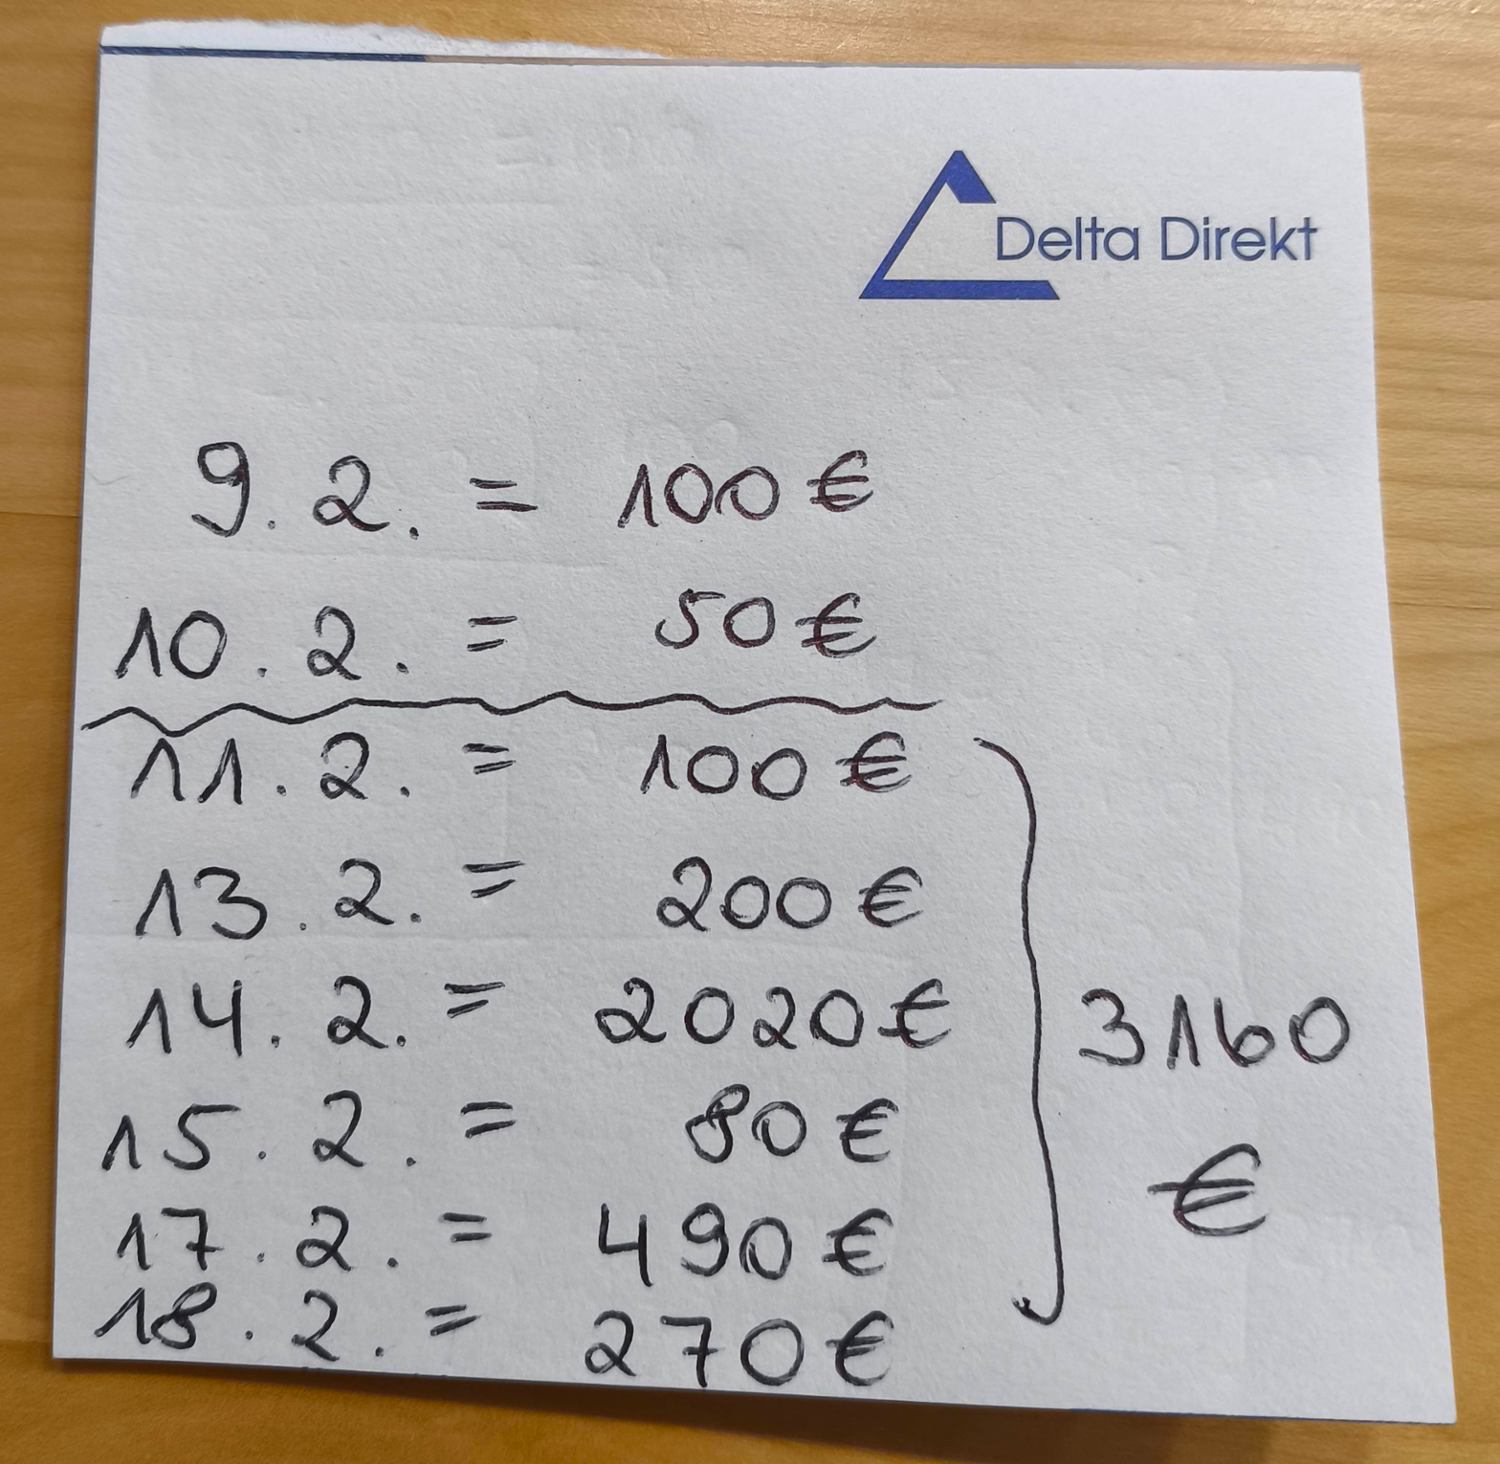 Delta Direkt
9.2. = 100€
10.2. = 50€
11.2. = 100€
13.2. = 200€
14.2. = 2020€
15.2. = 80€
17.2. = 490€
18.2. = 270€
3160
€